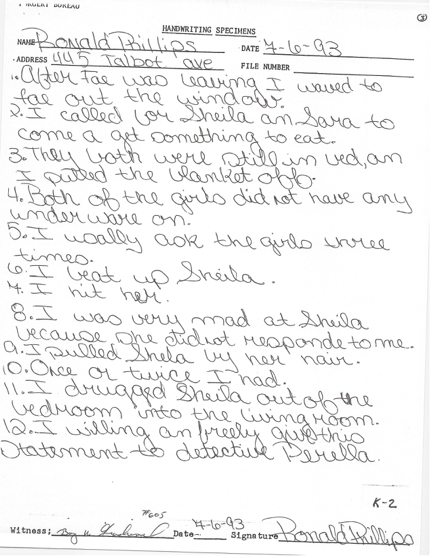 ③
HANDWRITING SPECIMENS
NAME Ronald Phillips DATE 4-6-93
ADDRESS 445 Talbot ave FILE NUMBER
1. After Fae was leaving I waved to
fae out the window.
2. I called for Sheila an Sara to
come a get something to eat.
3. They both were still in bed, an
I pulled the blanket off.
4. Both of the girls did not have any
underware on.
5. I usally ask the girls three
times.
6. I beat up Sheila.
7. I hit her.
8. I was very mad at Sheila
because she did not responde to me.
9. I pulled Shela by her hair.
10. Once or twice I had.
11. I drugged Sheila out of the
bedroom into the livingroom.
12. I willing an freely give this
Statement to detective Perella.
K-2
#605
Witness: Date 4-6-93 Signature Ronald Phillips